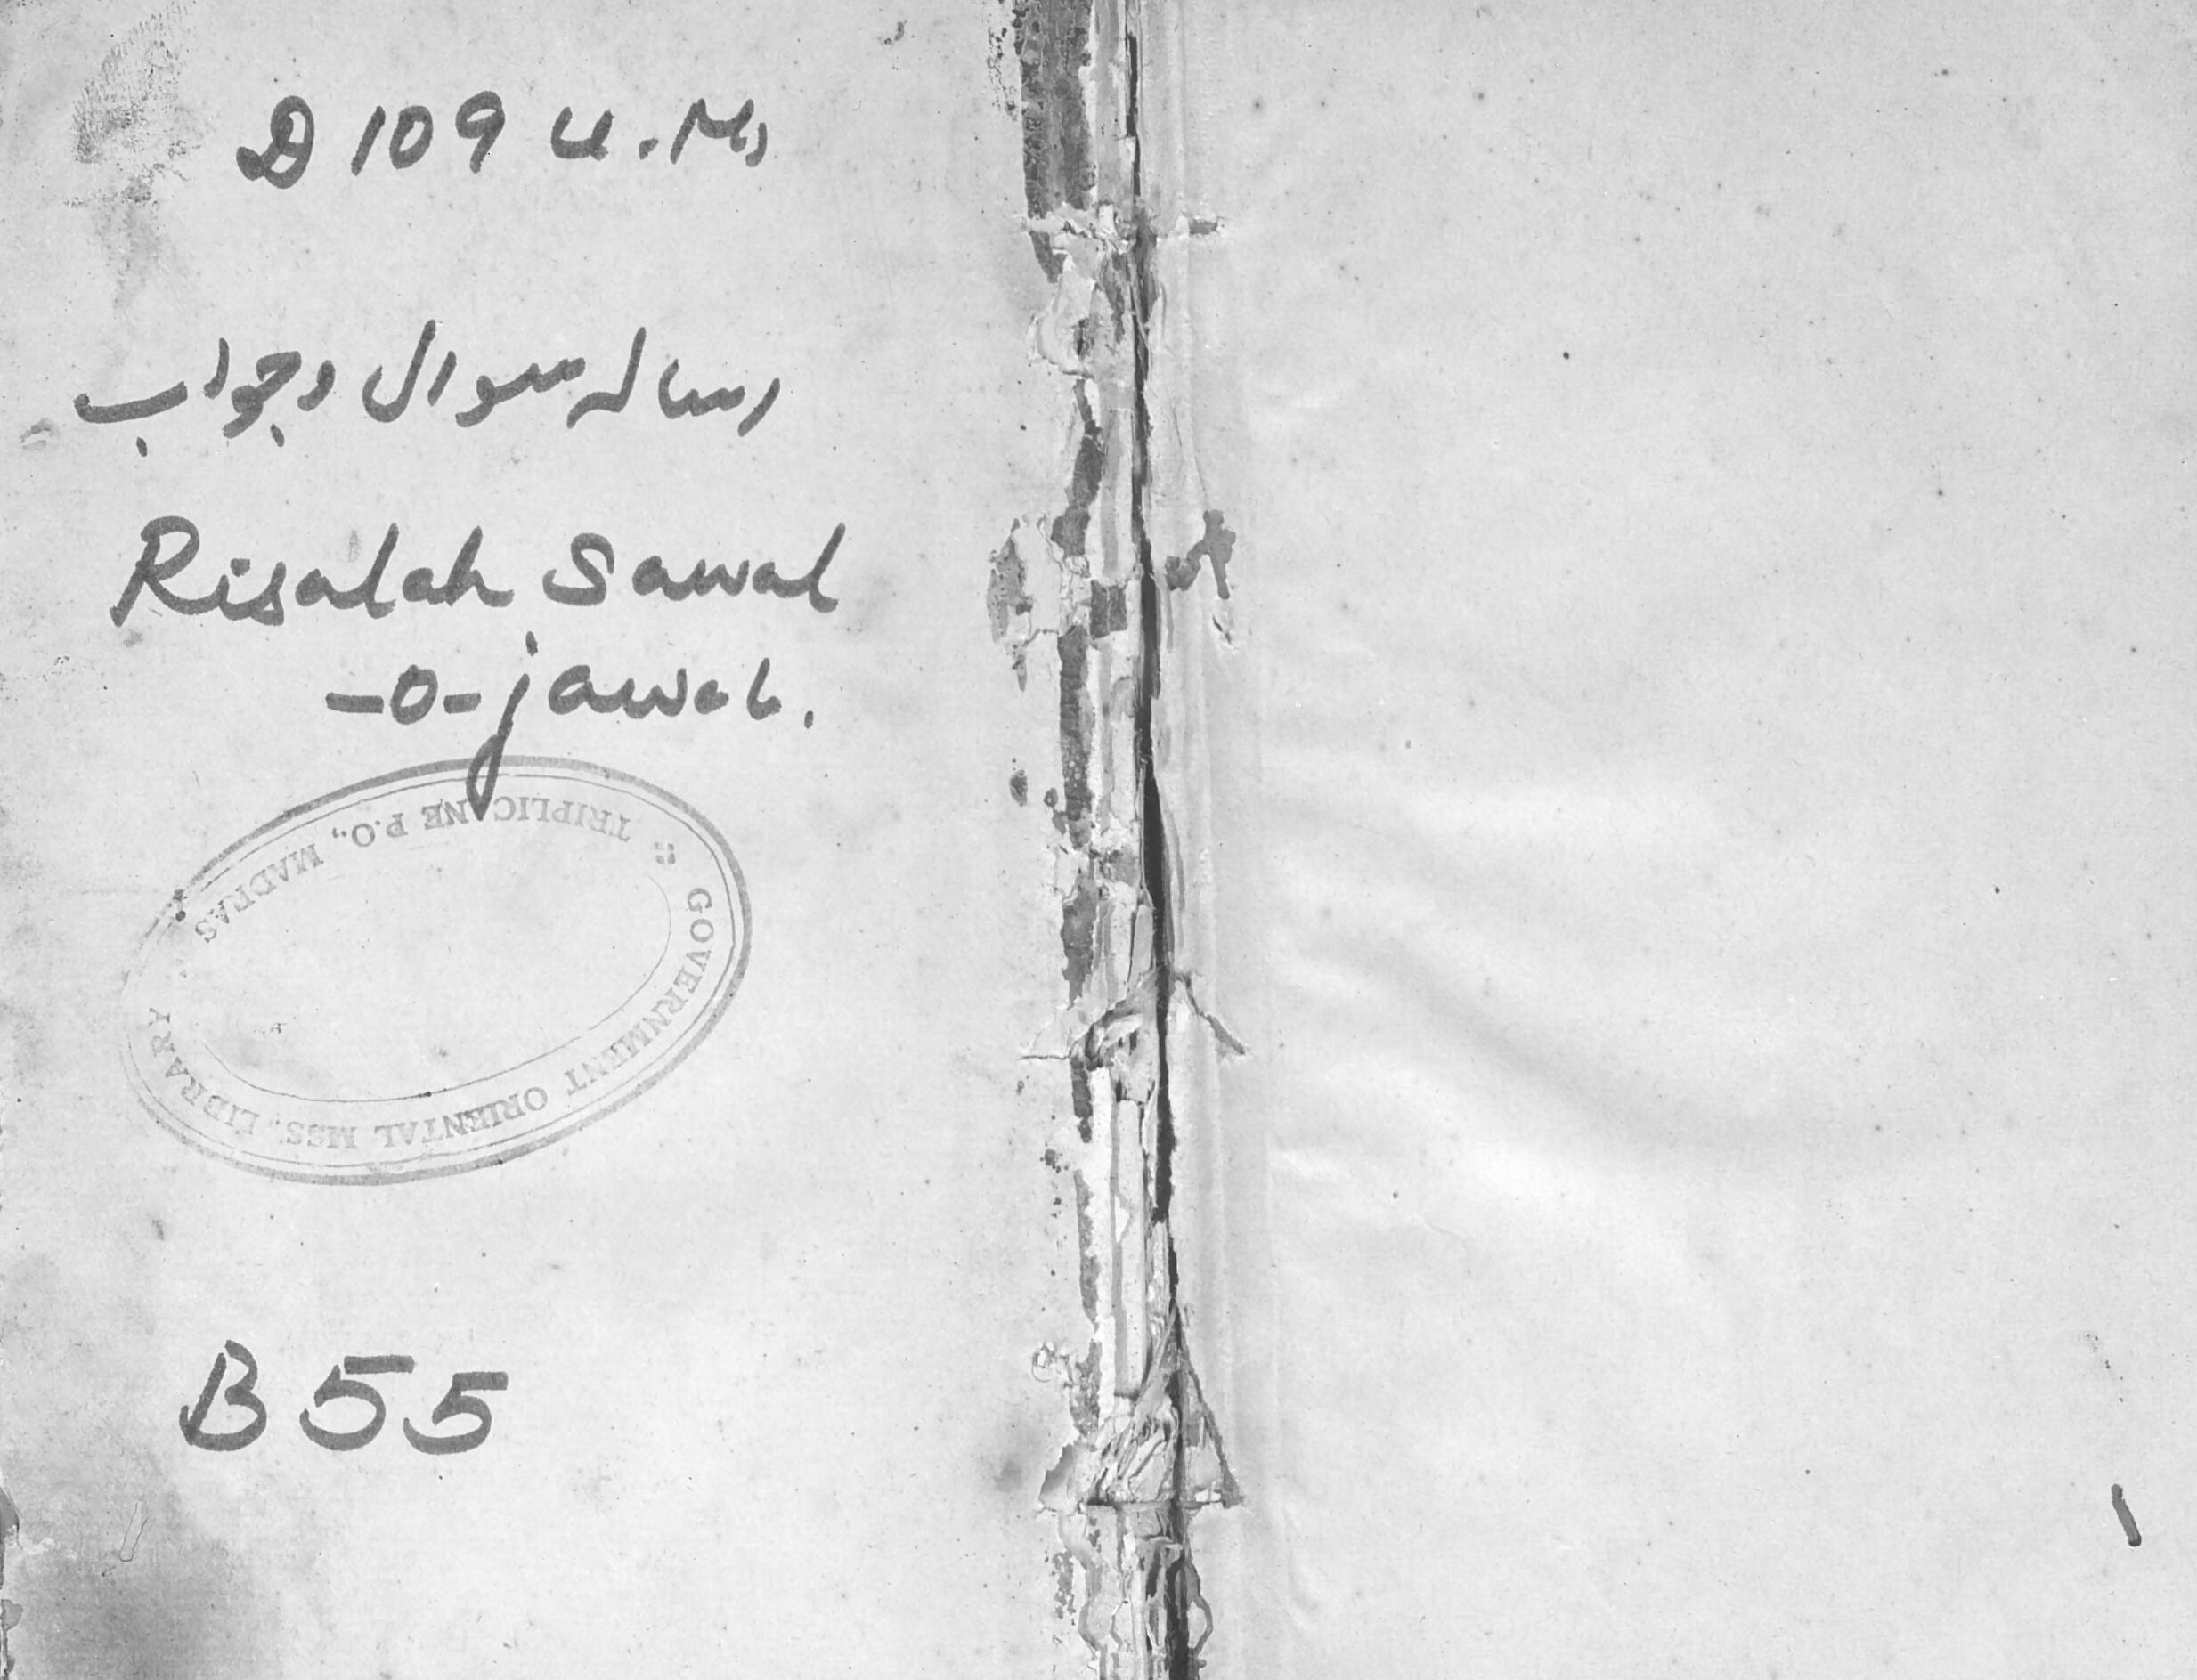 D 109 U.Ms
رسالہ سوال وجواب
Risalah Sawal
-o-jawab.
TRIPLICANE P.O., MADRAS
GOVERNMENT ORIENTAL MSS. LIBRARY
B 55